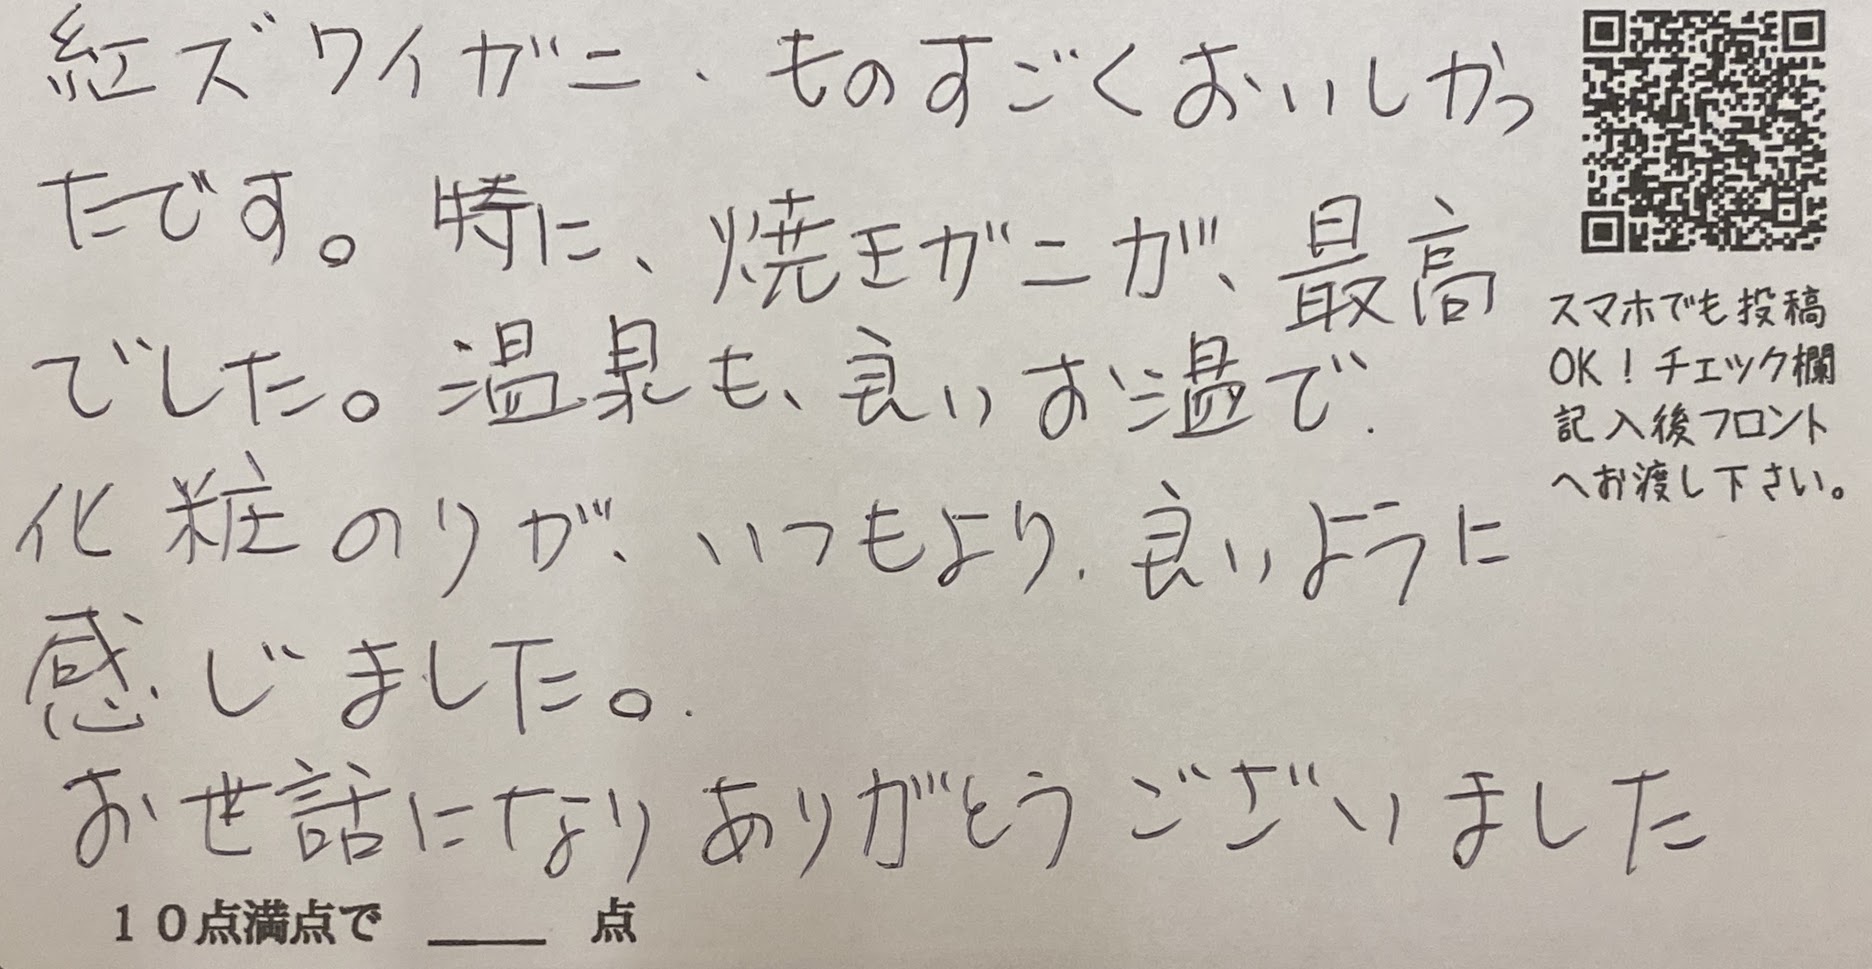 紅ズワイガニ、ものすごくおいしかっ
たです。特に、焼きガニが、最高
でした。温泉も、良いお温で、
化粧のりが、いつもより、良いように
感じました。
お世話になりありがとうございました
10点満点で ____ 点
スマホでも投稿
OK！チェック欄
記入後フロント
へお渡し下さい。